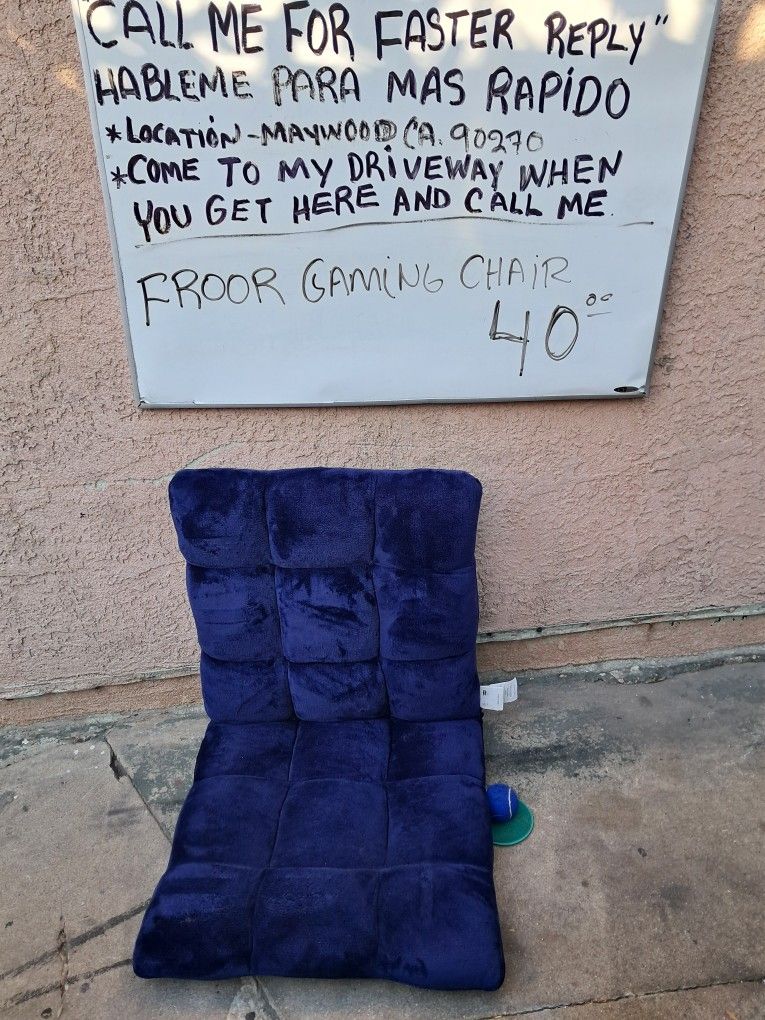 "CALL ME FOR FASTER REPLY"
HABLEME PARA MAS RAPIDO
*LOCATION-MAYWOOD CA. 90270
*COME TO MY DRIVEWAY WHEN
YOU GET HERE AND CALL ME.
FROOR GAMING CHAIR
40.00